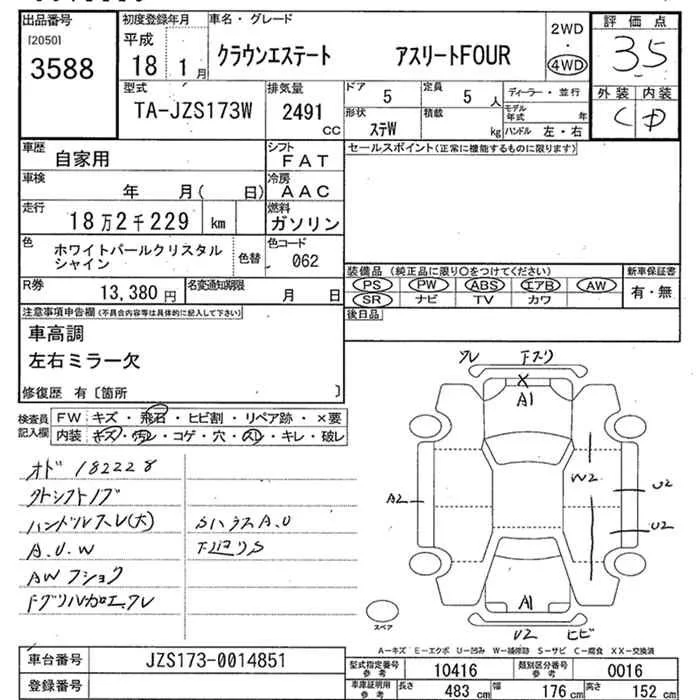 出品番号
[2050]
3588
初度登録年月
平成
18 1月
車名・グレード
クラウンエステート アスリートFOUR
2WD
・
4WD
評価点
3.5
外装 内装
C D
型式
TA-JZS173W
排気量
2491
CC
ドア
5
定員
5 人
形状
ステW
積載
kg
ディーラー・並行
モデル年式 年
ハンドル 左・右
車歴
自家用
シフト
FAT
セールスポイント(正常に機能するものに限ります)
車検
年 月( 日)
冷房
AAC
走行
18万2千229 km
燃料
ガソリン
色
ホワイトパールクリスタル
シャイン
色替
色コード
062
R券
13,380円
名変通知期限
月 日
装備品(純正品に限り○をつけてください)
PS PW ABS エアB AW
SR ナビ TV カワ
新車保証書
有・無
後日品
注意事項申告欄(不具合内容等は具体的に記入して下さい)
車高調
左右ミラー欠
修復歴 有〔箇所 〕
検査員記入欄
FW キズ・飛石・ヒビ割・リペア跡・×要
内装 キズ・汚レ・コゲ・穴・スレ・キレ・破レ
オド182228
外シフトノブ
ハンドルスレ(大)
A.U.W
AWフショク
Fグリル加工.ワレ
SハラスA.U
下廻りS
ワレ Fスリ
X
A1
A2
W2
U2
U2
A1
U2 ヒビ
スペア
A-キズ E-エクボ U-凹み W-補修跡 S-サビ C-腐食 XX-交換済
車台番号
JZS173-0014851
登録番号
型式指定番号
参考
10416
類別区分番号
参考
0016
車庫証明用
参考
長さ
483 cm
幅
176 cm
高さ
152 cm